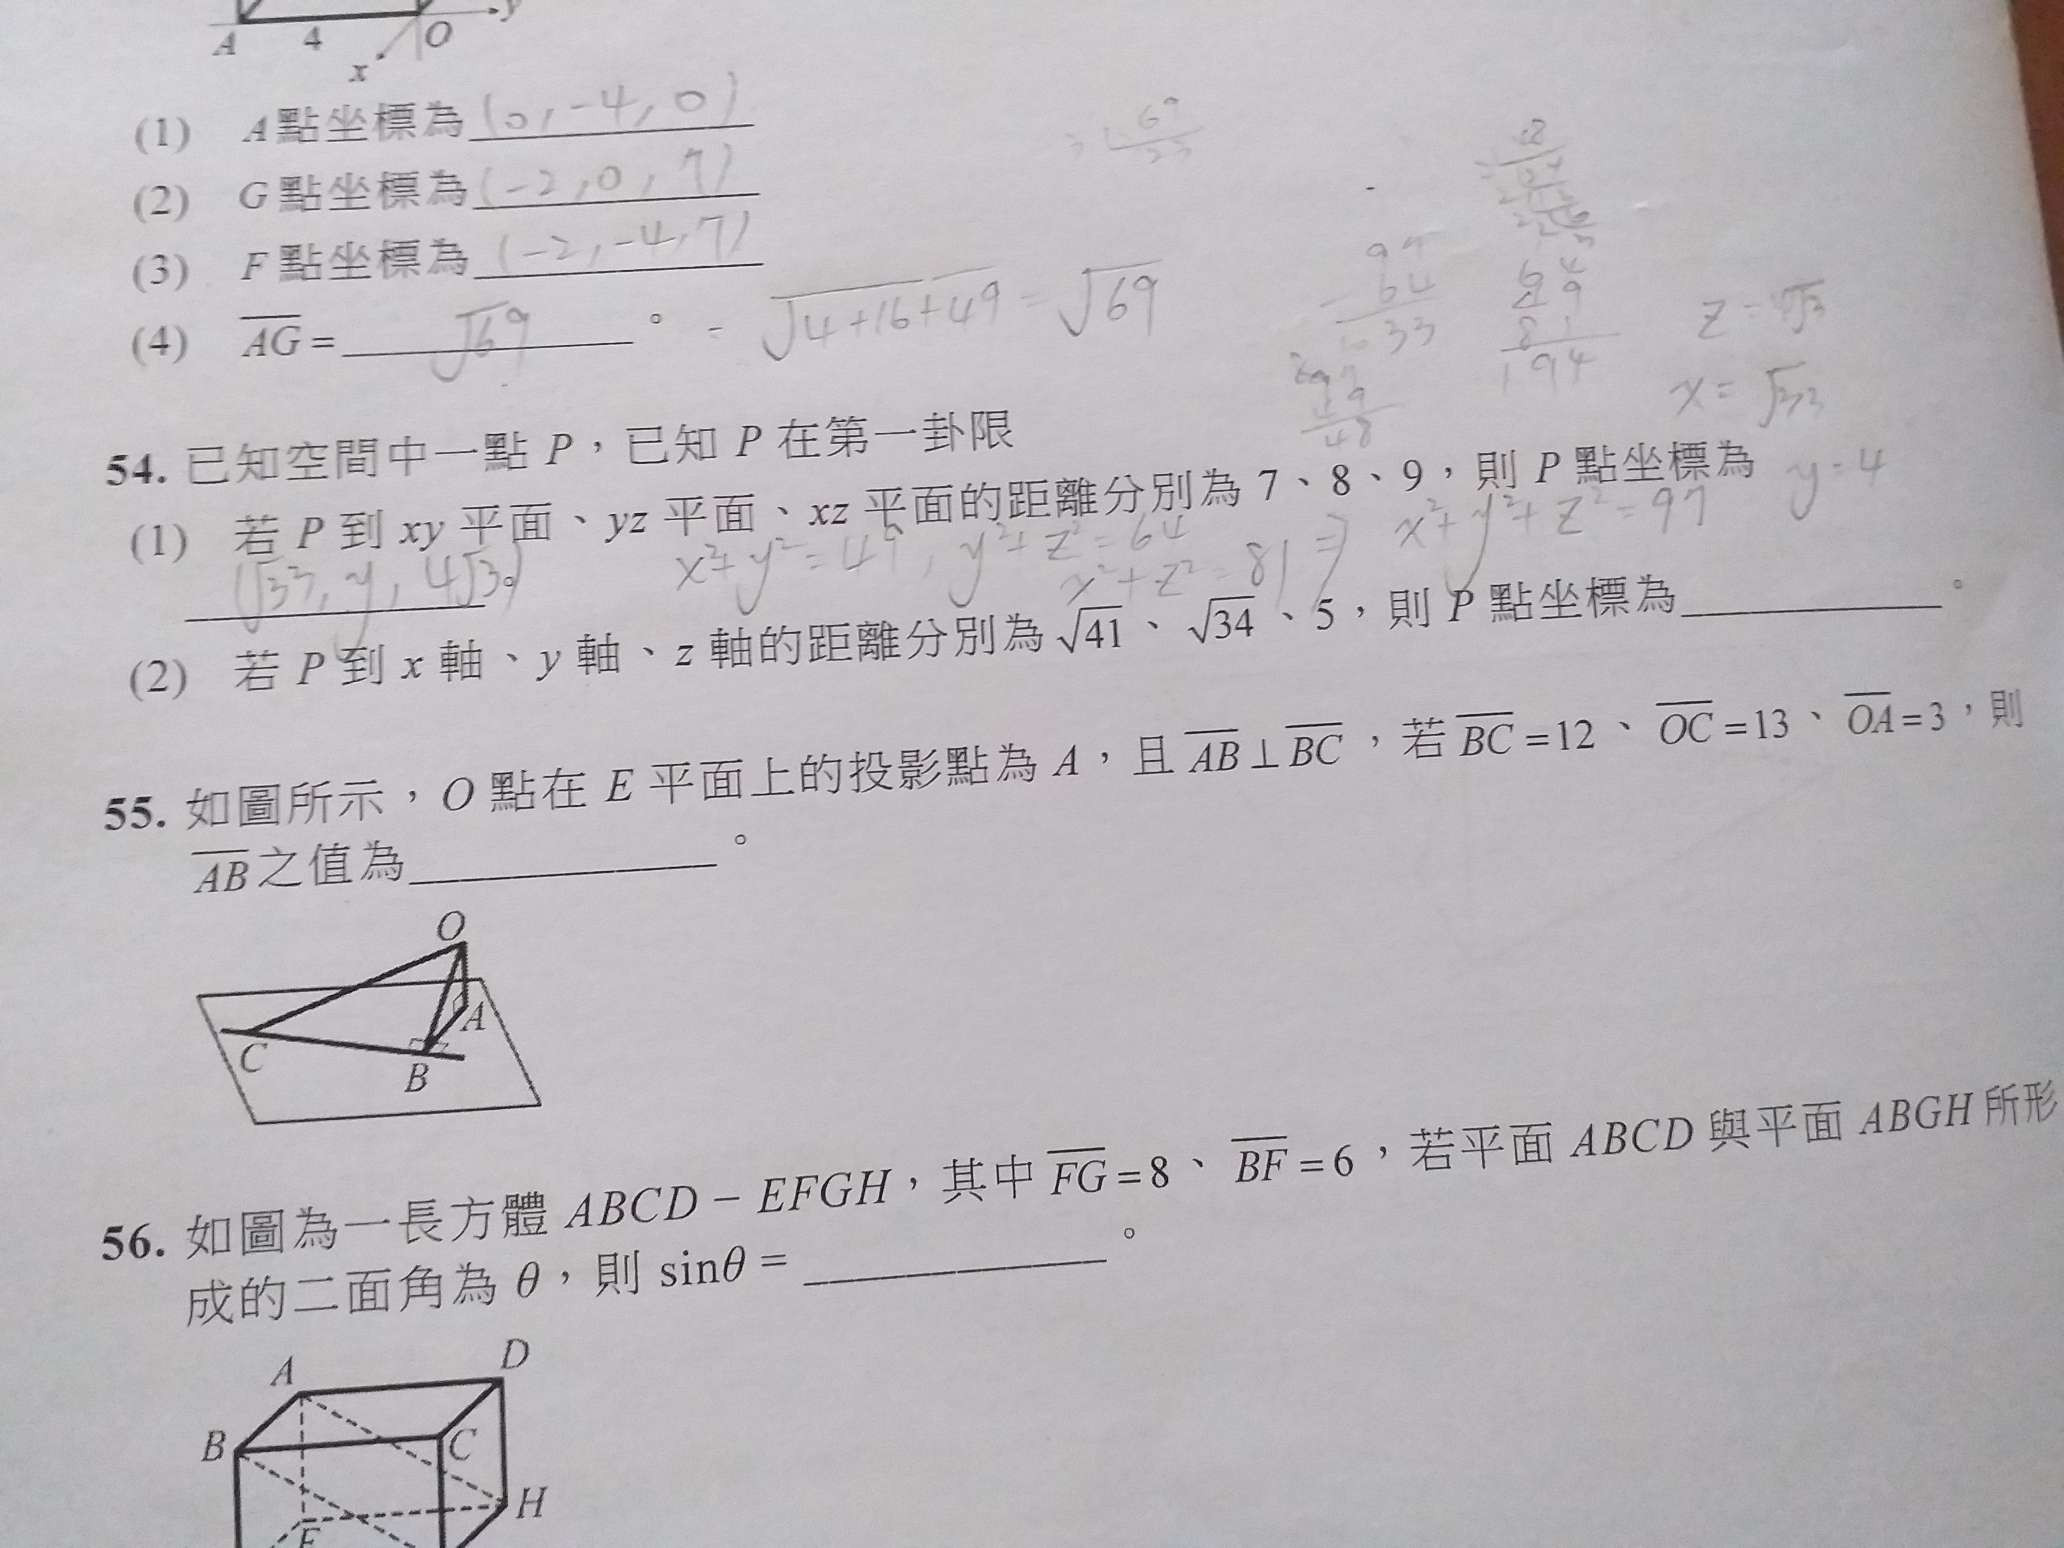 A 4 O y
x
(1) A點坐標為(0, -4, 0)
(2) G點坐標為(-2, 0, 7)
(3) F點坐標為(-2, -4, 7)
(4) AG = √69 。 = √4+16+49 = √69
97
64
33
64
49
81
194
x = √33
54. 已知空間中一點 P，已知 P 在第一卦限
(1) 若 P 到 xy 平面、yz 平面、xz 平面的距離分別為 7、8、9，則 P 點坐標為 y=4
(√33, y, 4√3)。 x²+y²=49, y²+z²=64 x²+z²=81 ⇒ x²+y²+z²=97
(2) 若 P 到 x 軸、y 軸、z 軸的距離分別為 √41、√34、5，則 P 點坐標為 。
55. 如圖所示，O 點在 E 平面上的投影點為 A，且 AB⊥BC，若 BC=12、OC=13、OA=3，則
AB 之值為 。
O
A
C
B
56. 如圖為一長方體 ABCD－EFGH，其中 FG=8、BF=6，若平面 ABCD 與平面 ABGH 所形
成的二面角為 θ，則 sinθ = 。
A D
B C
H
E